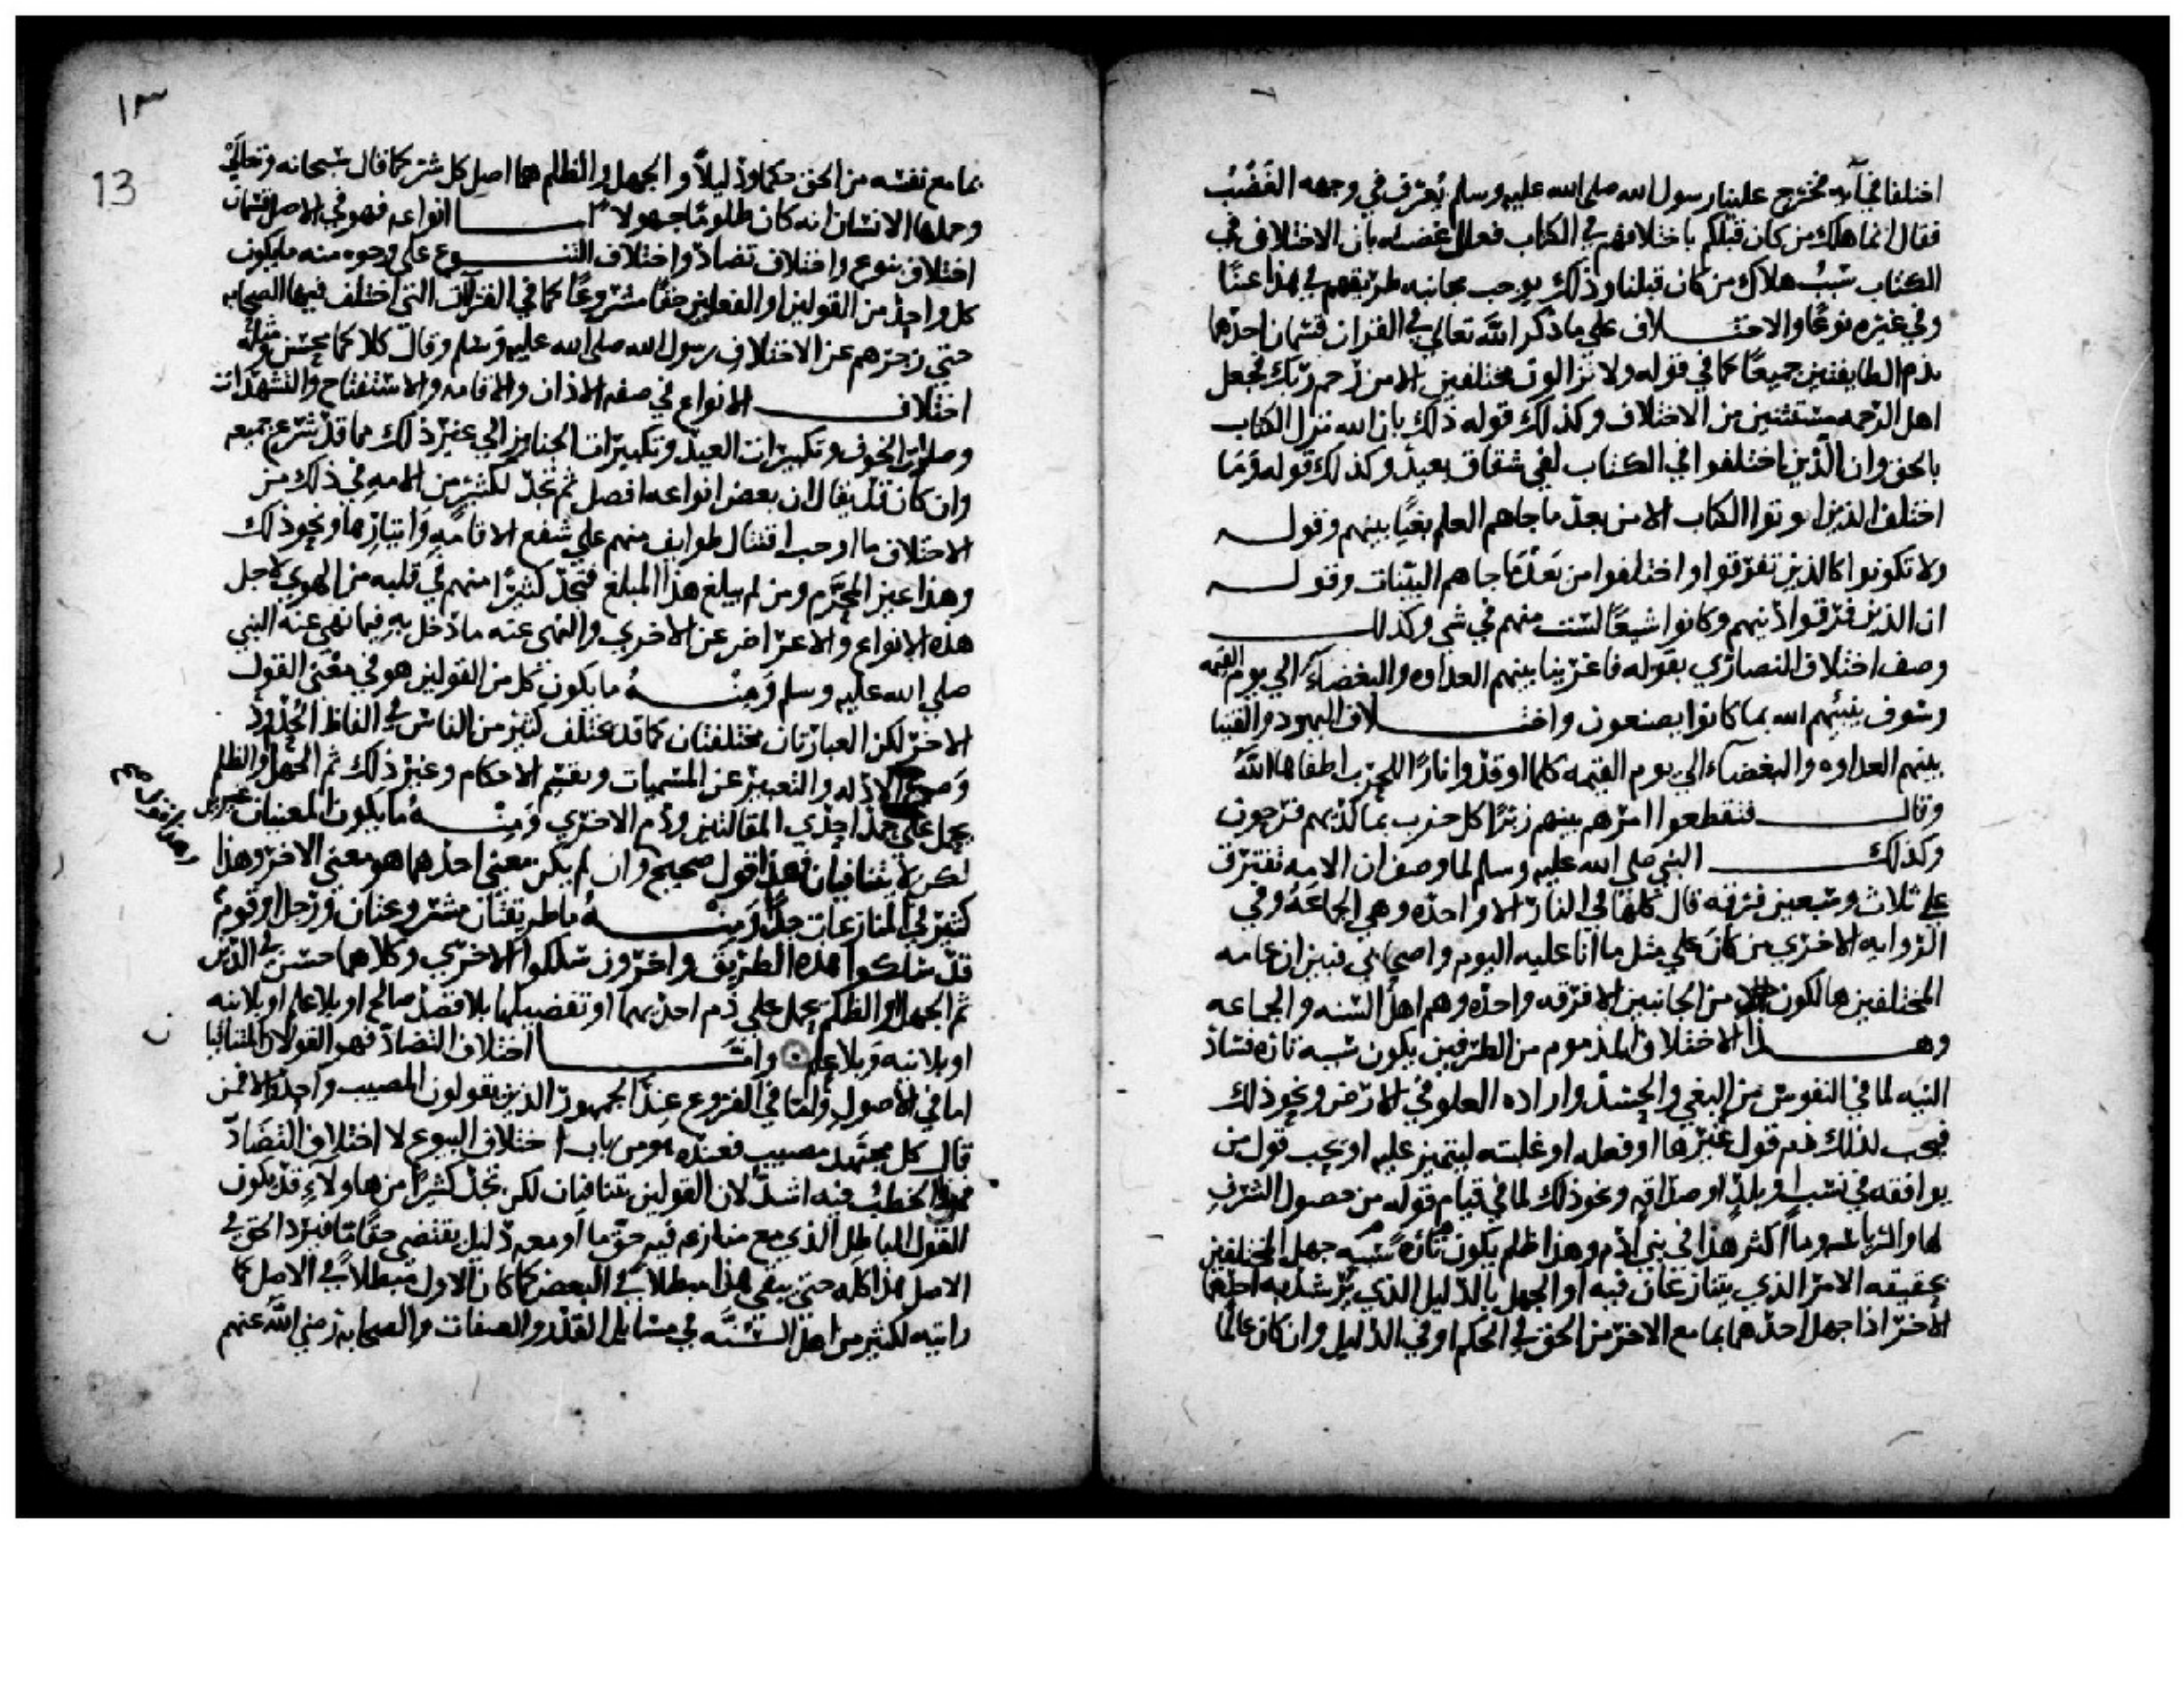 اختلفا في آية فخرج علينا رسول الله صلى الله عليه وسلم يُعرف في وجهه الغَضَبُ
فقال انما هلك من كان قبلكم باختلافهم في الكتاب فعلل غضبه بان الاختلاف في
الكتاب سَبَبُ هلاك من كان قبلنا وذلك يوجب مجانبه طريقهم في هذا عينًا
وفي غيره نوعًا والاختلاف علي ما ذكر الله تعالى في القران قسمان احدهما
يذم الطايفتين جميعًا كما في قوله ولا يزالون مختلفين الا من رحم ربك فجعل
اهل الرحمه مستثنين من الاختلاف وكذلك قوله ذلك بان الله نزل الكتاب
بالحق وان الذين اختلفوا في الكتاب لفي شقاق بعيد وكذلك قوله وَمَا
اختلف الذين اوتوا الكتاب الا من بعد ما جاهم العلم بغيًا بينهم وقوله
ولا تكونوا كالذين تفرقوا واختلفوا من بَعْدِ مَا جاهم البينات وقوله
ان الذين فرقوا دينهم وكانوا شيعًا لست منهم في شي وكذلك
وصف اختلاف النصارى بقوله فاغرينا بينهم العداوه والبغضآء الي يوم القيمه
وسوف ينبئهم الله بما كانوا يصنعون واختلاف اليهود والقينا
بينهم العداوه والبغضآء الي يوم القيمه كلما اوقدوا نارًا للحرب اطفاها اللهُ
وقال فتقطعوا امرهم بينهم زبرًا كل حزب بما لديهم فرحون
وكذلك النبي صلى الله عليه وسلم لما وصف ان الامه تفترق
علي ثلاث وسبعين فرقه قال كلها في النار الا واحده وهي الجماعَةُ وفي
الروايه الاخري من كان علي مثل ما انا عليه اليوم واصحابي فبين ان عامه
المختلفين هالكون من الجانبين الا فرقه واحده وهم اهل السنه والجماعه
وهذا الاختلاف المذموم من الطرفين يكون سببه تاره فساد
النيه لما في النفوس من البغي والحسد واراده العلو في الارض ونحو ذلك
فيجب لذلك ذم قول غيرها او فعله او غلبته ليتميز عليه او يحب قول من
يوافقه في نسب او بلدٍ او صداقه ونحو ذلك لما في قيام قوله من حصول الشرف
لها والرياسه وما اكثر هذا في بني آدم وهذا ظلم يكون تارةً سببه جهل المختلفين
بحقيقه الامر الذي يتنازعان فيه او الجهل بالدليل الذي يرشد به احدهما
الاخر اذا جهل احدهما بما مع الاخر من الحق في الحكم او في الدليل وان كان عالمًا
١٣
13
بما مع نفسه من الحق حكمًا ودليلاً والجهل والظلم هما اصل كل شر كما قال سبحانه وتعالى
وحملها الانسان انه كان ظلومًا جهولا اما انواعه فهو في الاصل قسمان
اختلاف تنوع واختلاف تضاد واختلاف التنوع علي وجوه منه ما يكون
كل واحد من القولين او الفعلين حقًا مشروعًا كما في القراآت التي اختلف فيها الصحابه
حتي زجرهم عن الاختلاف رسول الله صلى الله عليه وسلم وقال كلاكما محسن ومثلُهُ
اختلاف الانواع في صفه الاذان والاقامه والاستفتاح والتشهدات
وصلاة الخوف وتكبيرات العيد وتكبيرات الجنايز الي غير ذلك مما قد شرع جميعه
وان كان قد يقال ان بعض انواعه افضل ثم نجد لكثير من الامه في ذلك من
الاختلاف ما اوجب اقتتال طوايف منهم علي شفع الاقامه وايتارها ونحو ذلك
وهذا عين المحرم ومن لم يبلغ هذا المبلغ فتجد كثيرًا منهم في قلبه من الهوي لاجل
هذه الانواع والاعراض عن الاخري والنهى عنه ما دخل به فيما نهى عنه النبي
صلي الله عليه وسلم وَمِنْهُ ما يكون كل من القولين هو في معْنَى القول
الاخر لكن العبارتان مختلفتان كما قد يختلف كثير من الناس في الفاظ الحُدُودِ
وصيغ الادله والتعبير عن المسميات وتقسيم الاحكام وغير ذلك ثم الجهل والظلم
يحمل على حمد احدي المقالتين وذم الاخري وَمِنْهُ ما يكون المعنيان غيرين
لكن لا يتنافيان فهذا قول صحيح وان لم يكن معنى احدهما هو معنى الاخر وهذا
كثير في المنازعات جدًا وَمِنْهُ ما طريقتان مشروعتان ورجل او قومٌ
قد سلكوا هذه الطريق واخرون سلكوا الاخري وكلاهما حسن في الدين
ثم الجهل او الظلم يحمل علي ذم احديهما او تفضيلها بلا قصد صالح او بلا علم او بلا نيه
او بلا نيه وبلا علم واما اختلاف التضاد فهو القولان المتنافيان
اما في الأصول وَامَّا في الفروع عِنْدَ الجمهور الذين يقولون المصيب واحد والا فمن
قال كل مجتهد مصيب فعنده هو من باب اختلاف التنوع لا اختلاف التَضَادِّ
فهذا الخطبُ فيه اشد لان القولين يتنافيان لكن نجد كثيرًا من هاولاء قد يكون
القول الباطل الذي مع منازعه فيه حق ما او معه دليل يقتضي حقًا مَّا فيرد الحق في
الاصل هذا كله حتى يبقى هذا مبطلاً في البعض كما كان الاول مبطلاً في الاصل كما
رايته لكثير من اهل السُنَّه في مسايل القدر والصفات والصحابه رضي الله عنهم